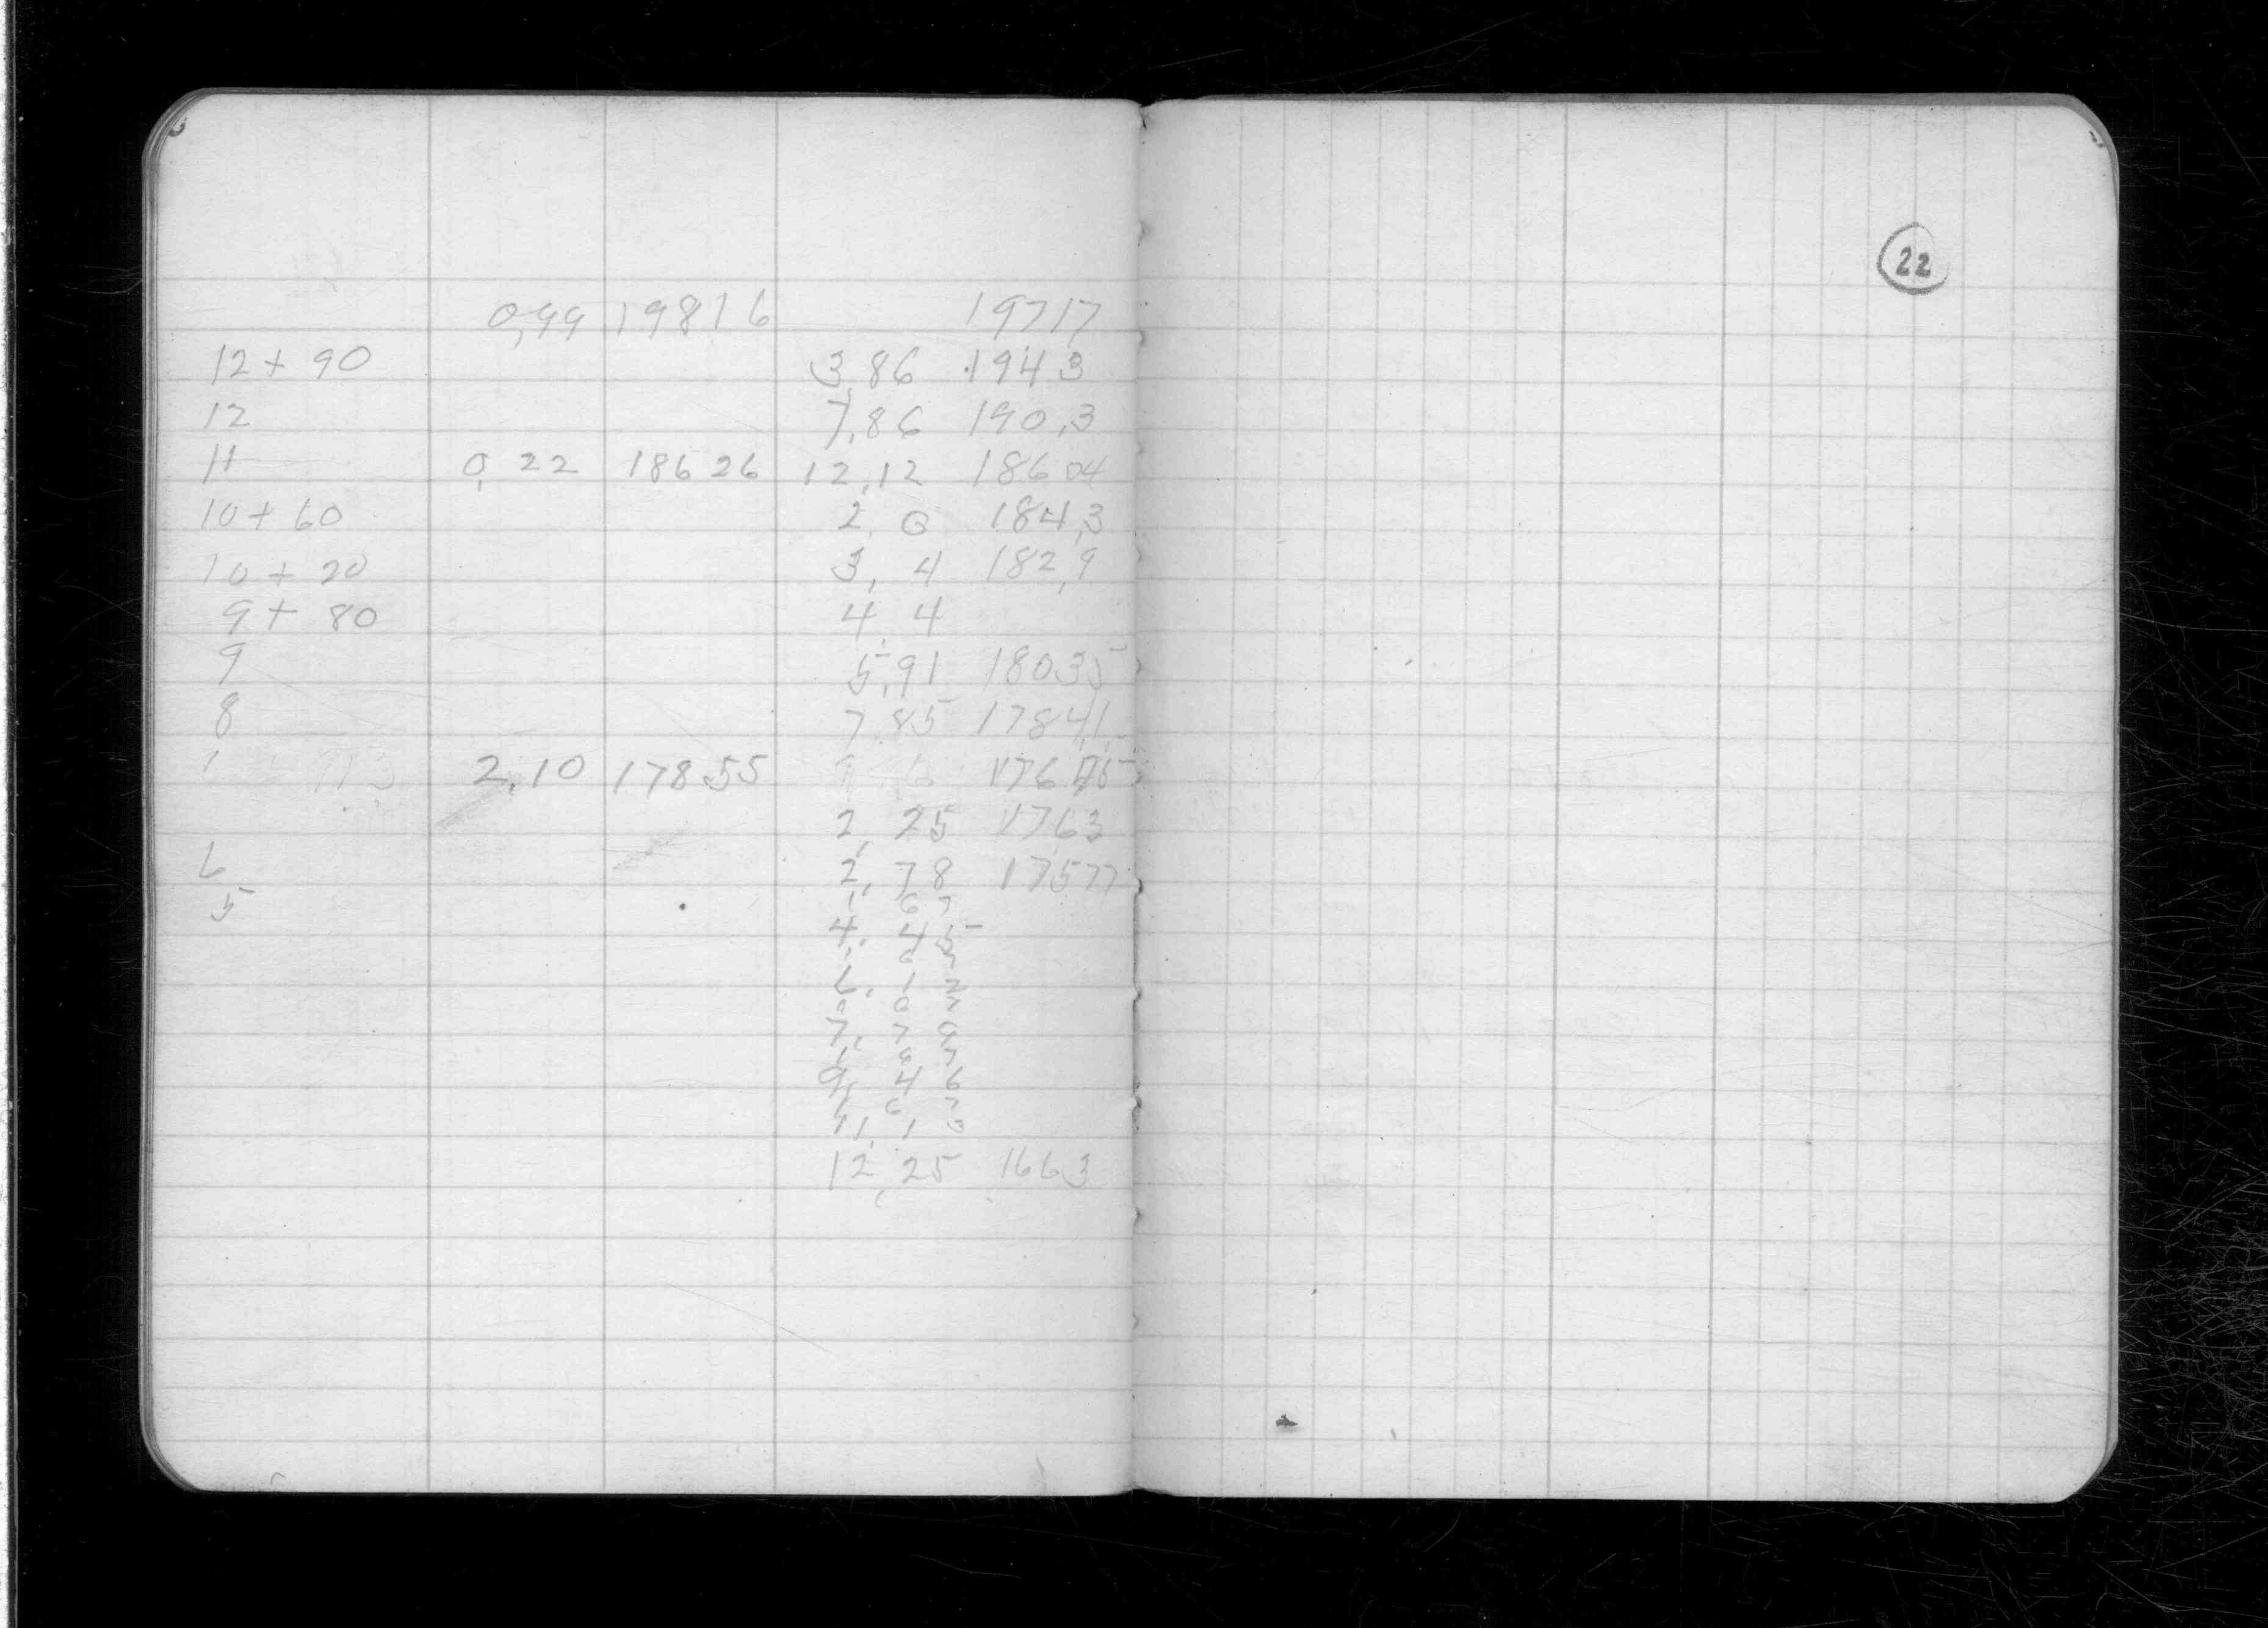 0,99 19816 19717
12+ 90 3,86 194 3
12 7,86 190,3
11 0,22 186 26 12,12 186 04
10+ 60 2, 0 184,3
10 + 20 3, 4 182,9
9 + 80 4 4
9 5,91 18035
8 7 85 1784,1
2,10 178 55 176
2, 25 1763
6 2, 78 17577
5 1 67
4, 45
6, 1 2
7, 7 9
9, 4 6
11, 1 3
12,25 1663
22